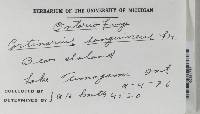 HERBARIUM OF THE UNIVERSITY OF MICHIGAN
Ontario Fungi
Cortinarius sanguineus Fr.
Bear Island
Lake Timagami Ont
COLLECTED BY
DETERMINED BY A H Smith